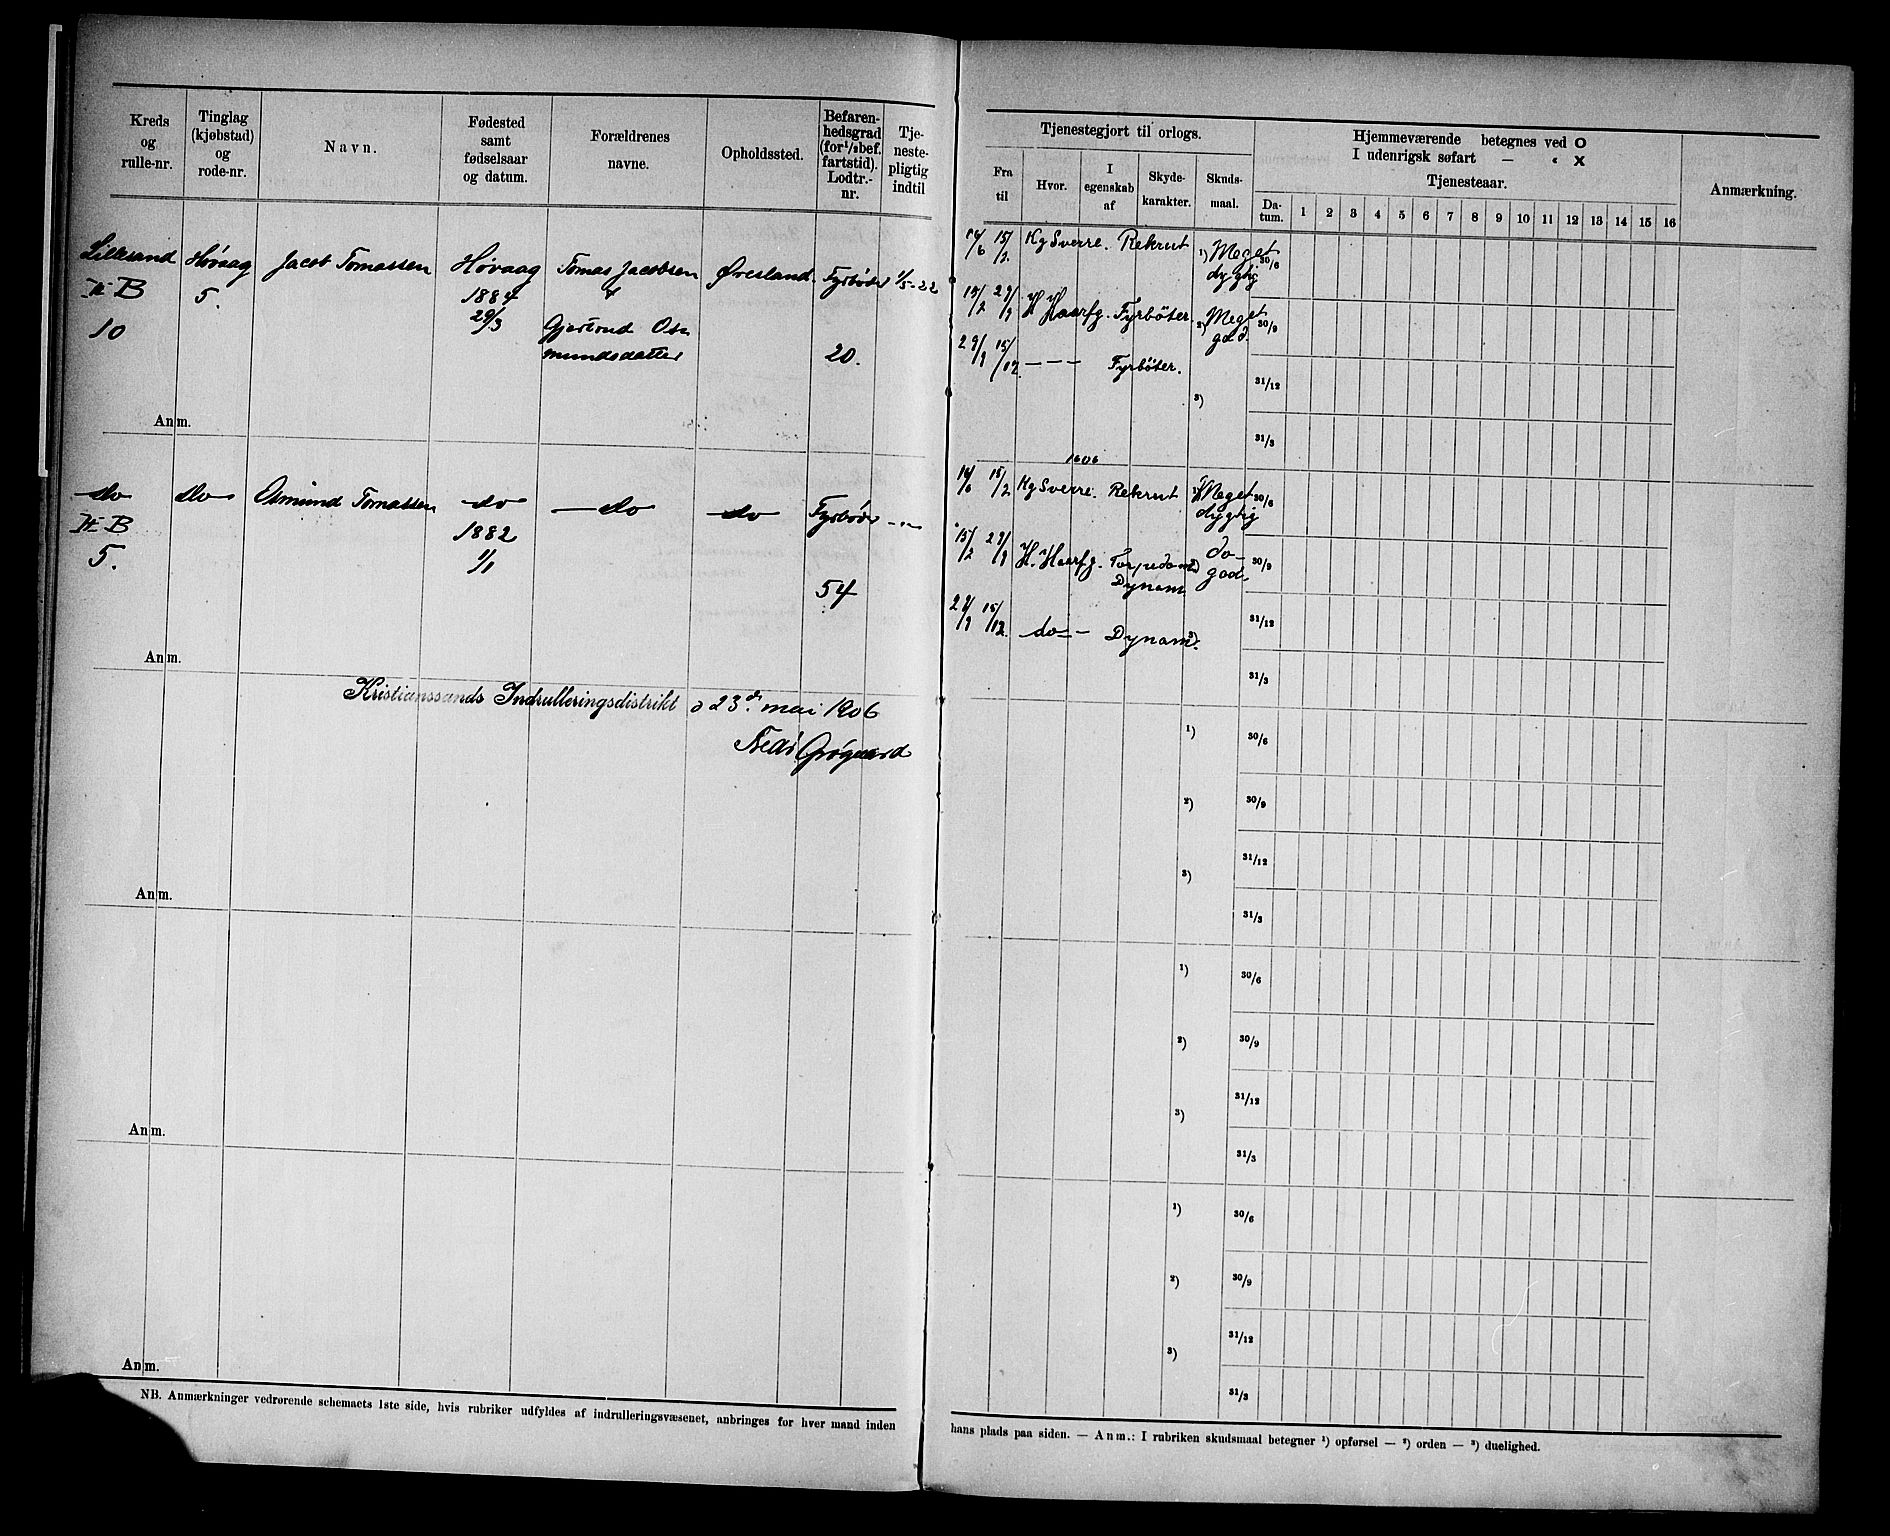 Kreds og rulle-nr.
Tinglag (kjøbstad) og rode-nr.
Navn.
Fødested samt fødselsaar og datum.
Forældrenes navne.
Opholdssted.
Befarenhedsgrad (for 1/2 bef. fartstid). Lodtr.-nr.
Tjenestepligtig indtil
Tjenestegjort til orlogs.
Fra til
Hvor.
I egenskab af
Skydekarakter.
Skudsmaal.
Hjemmeværende betegnes ved O
I udenrigsk søfart — « X
Tjenesteaar.
Datum.
1 2 3 4 5 6 7 8 9 10 11 12 13 14 15 16
Anmærkning.
Lillesand
II-B
10
Høvaag
5.
Jacob Tomassen
Høvaag
1884
29/3
Tomas Jacobsen
&
Gjertrud Os-
mundsdatter
Øvesland.
Fyrbøder
20.
1/5-22
16/6 15/2 Kg Sverre. Rekrut 1) Meget dygtig 30/6
15/2 29/9 H Haarfg. Fyrbøter. 2) Meget god. 30/9
29/9 15/12. — — — Fyrbøter. 31/12
3)
31/3
Anm.
do
II-B
5.
do
Osmund Tomassen
do
1882
1/1
do
do
Fyrbøder
54
- " -
1606
16/6 15/2 Kg Sverre. Rekrut 1) Meget dygtig 30/6
15/2 29/9 H. Haarfg. Torpedom 2) do god. 30/9
Dynam.
29/9 15/12. do - Dynam. 3) 31/12
31/3
Anm.
Kristianssands Indrulleringsdistrikt d 23de mai 1906
Fredr Grøgaard
1) 30/6
2) 30/9
3) 31/12
31/3
Anm.
1) 30/6
2) 30/9
3) 31/12
31/3
Anm.
1) 30/6
2) 30/9
3) 31/12
31/3
Anm.
NB. Anmærkninger vedrørende schemaets 1ste side, hvis rubriker udfyldes af indrulleringsvæsenet, anbringes for hver mand inden
hans plads paa siden. — Anm.: I rubriken skudsmaal betegner 1) opførsel — 2) orden — 3) duelighed.